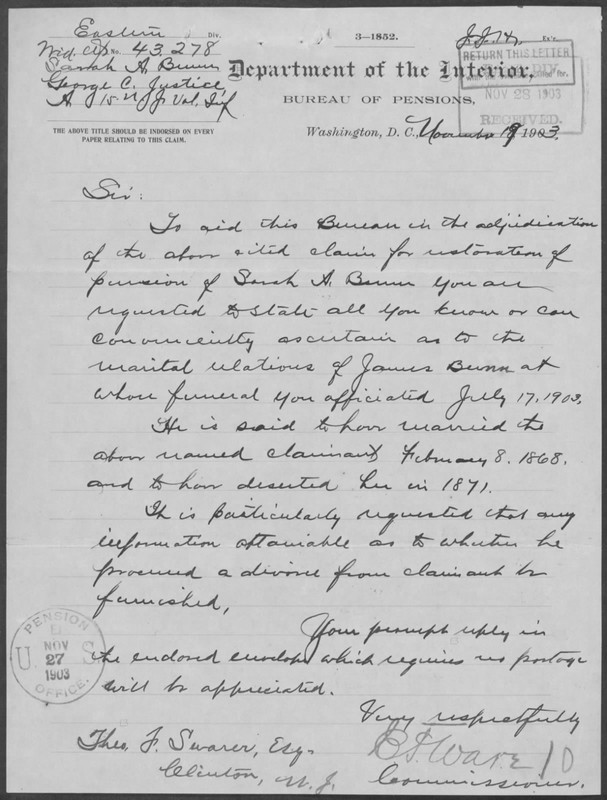 Eastern Div.
Wid. Ctf. No. 43,278
Sarah A. Bunn
George C. Justice
A 15 N.J. Vol. Inf
THE ABOVE TITLE SHOULD BE ENDORSED ON EVERY
PAPER RELATING TO THIS CLAIM.
3—1852.
J.J.H. Ex'r.
Department of the Interior,
BUREAU OF PENSIONS,
Washington, D. C., November 19, 1903.
RETURN THIS LETTER
NOV 28 1903
RECEIVED.
Sir:
To aid this Bureau in the adjudication
of the above cited claim for restoration of
pension of Sarah A. Bunn you are
requested to state all you know or can
conveniently ascertain as to the
marital relations of James Bunn at
whose funeral you officiated July 17, 1903.
He is said to have married the
above named claimant February 8, 1868,
and to have deserted her in 1871.
It is particularly requested that any
information obtainable as to whether he
procured a divorce from claimant be
furnished,
Your prompt reply in
the enclosed envelope which requires no postage
will be appreciated.
Very respectfully
Commissioner.
Theo. F. Swarer, Esq.
Clinton, N. J.
PENSION
U S
NOV
27
1903
OFFICE.